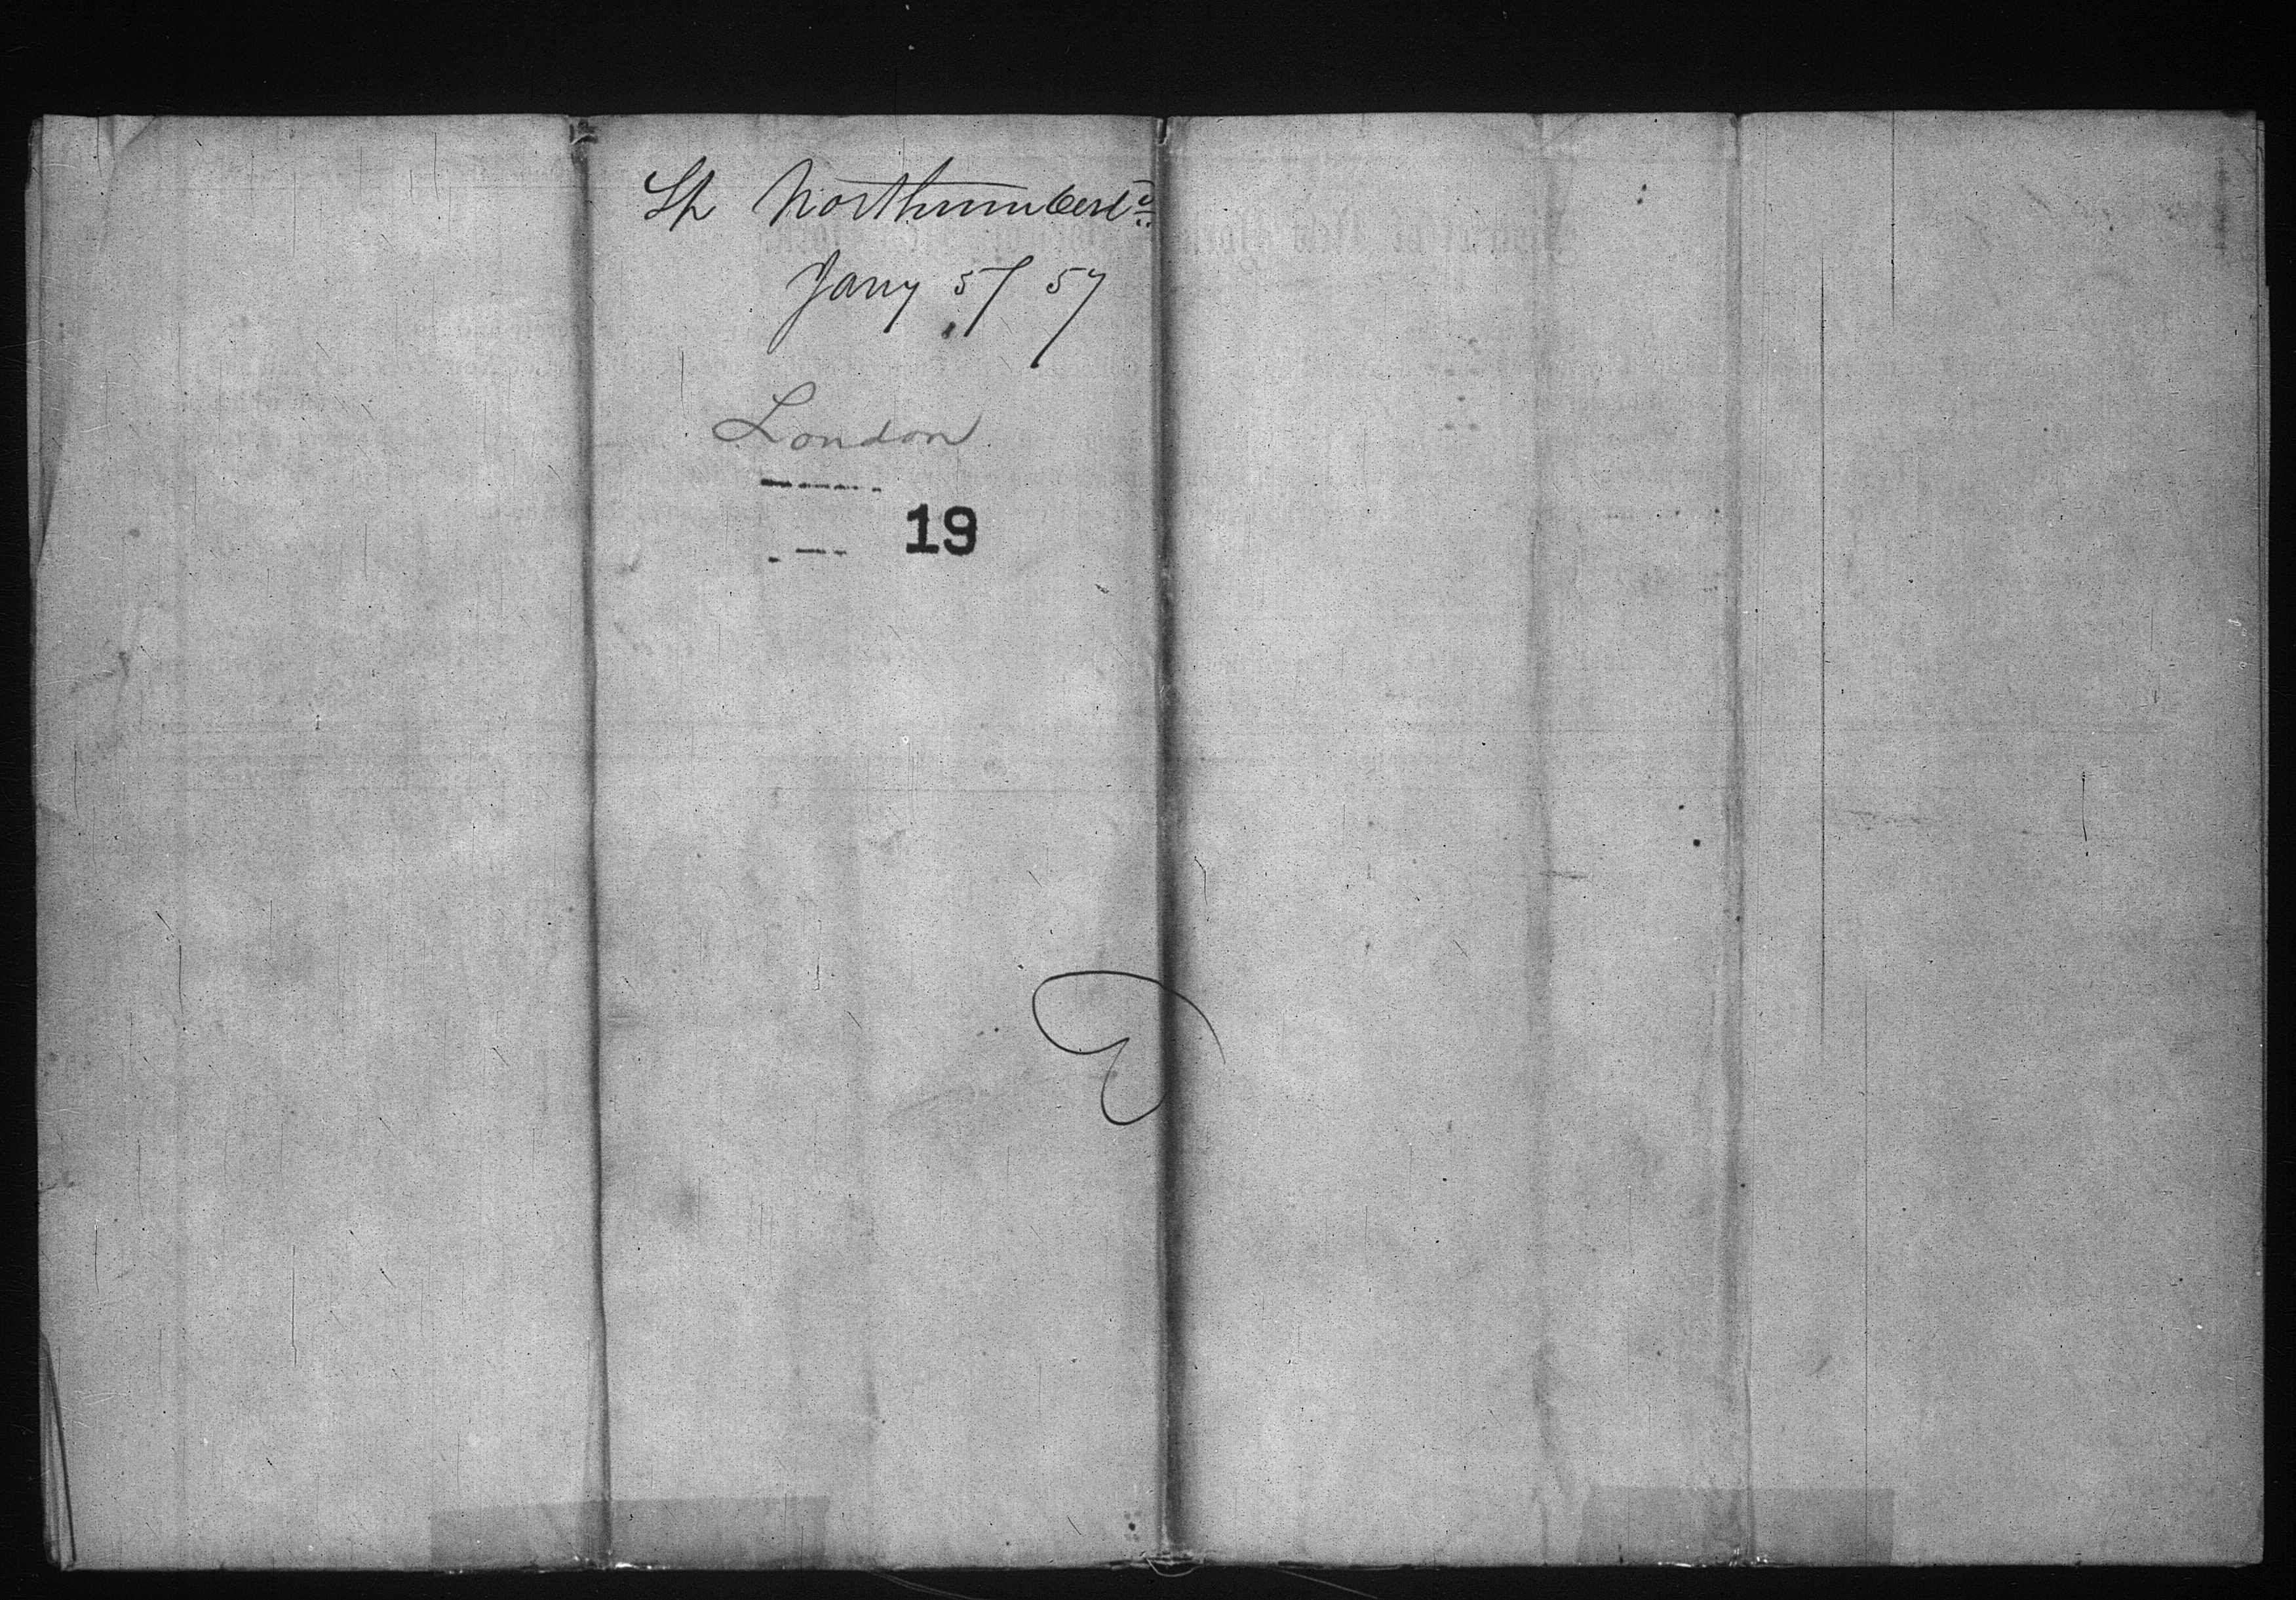 Sh Northumberld
Jany 5/57
London
19